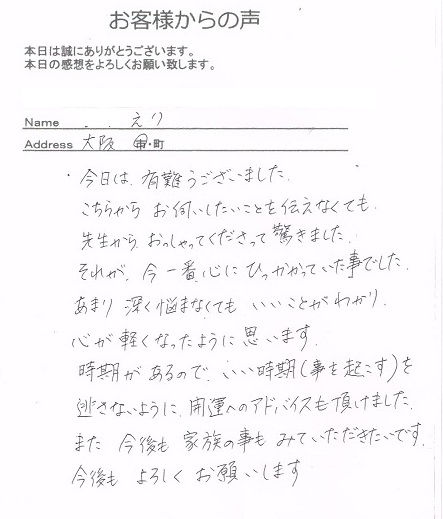 お客様からの声
本日は誠にありがとうございます。
本日の感想をよろしくお願い致します。
Name . . えり
Address 大阪 市・町
・今日は、有難うございました。
こちらから お伺いしたいことを伝えなくても、
先生から おっしゃってくださって驚きました。
それが、今一番、心にひっかかっていた事でした。
あまり 深く悩まなくても いいことがわかり、
心が軽くなったように思います。
時期があるので、いい時期(事を起こす)を
逃さないように、開運へのアドバイスも頂けました。
また 今後も 家族の事も みていただきたいです。
今後も よろしく お願いします